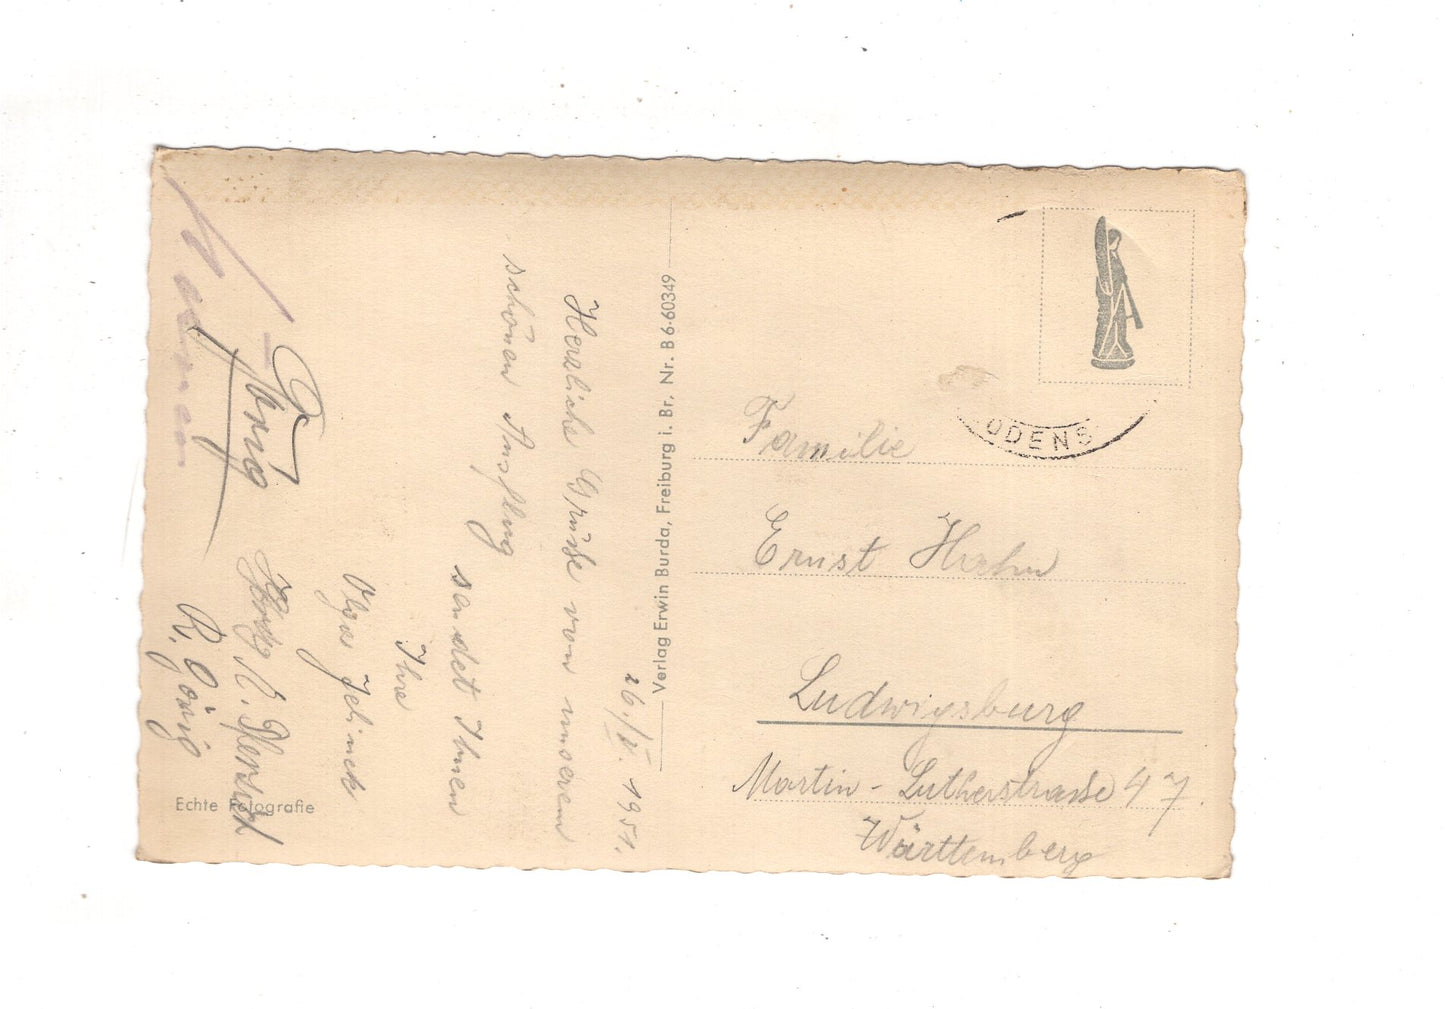 26./V. 1951.
Herzliche Grüße von unserem
schönen Ausflug
sendet Ihnen
Ihre
Olga Jelinek
R. Görig
Verlag Erwin Burda, Freiburg i. Br., Nr. B 6-60349
Echte Fotografie
ODENS
Familie
Ernst Hahn
Ludwigsburg
Martin-Lutherstrasse 47.
Württemberg